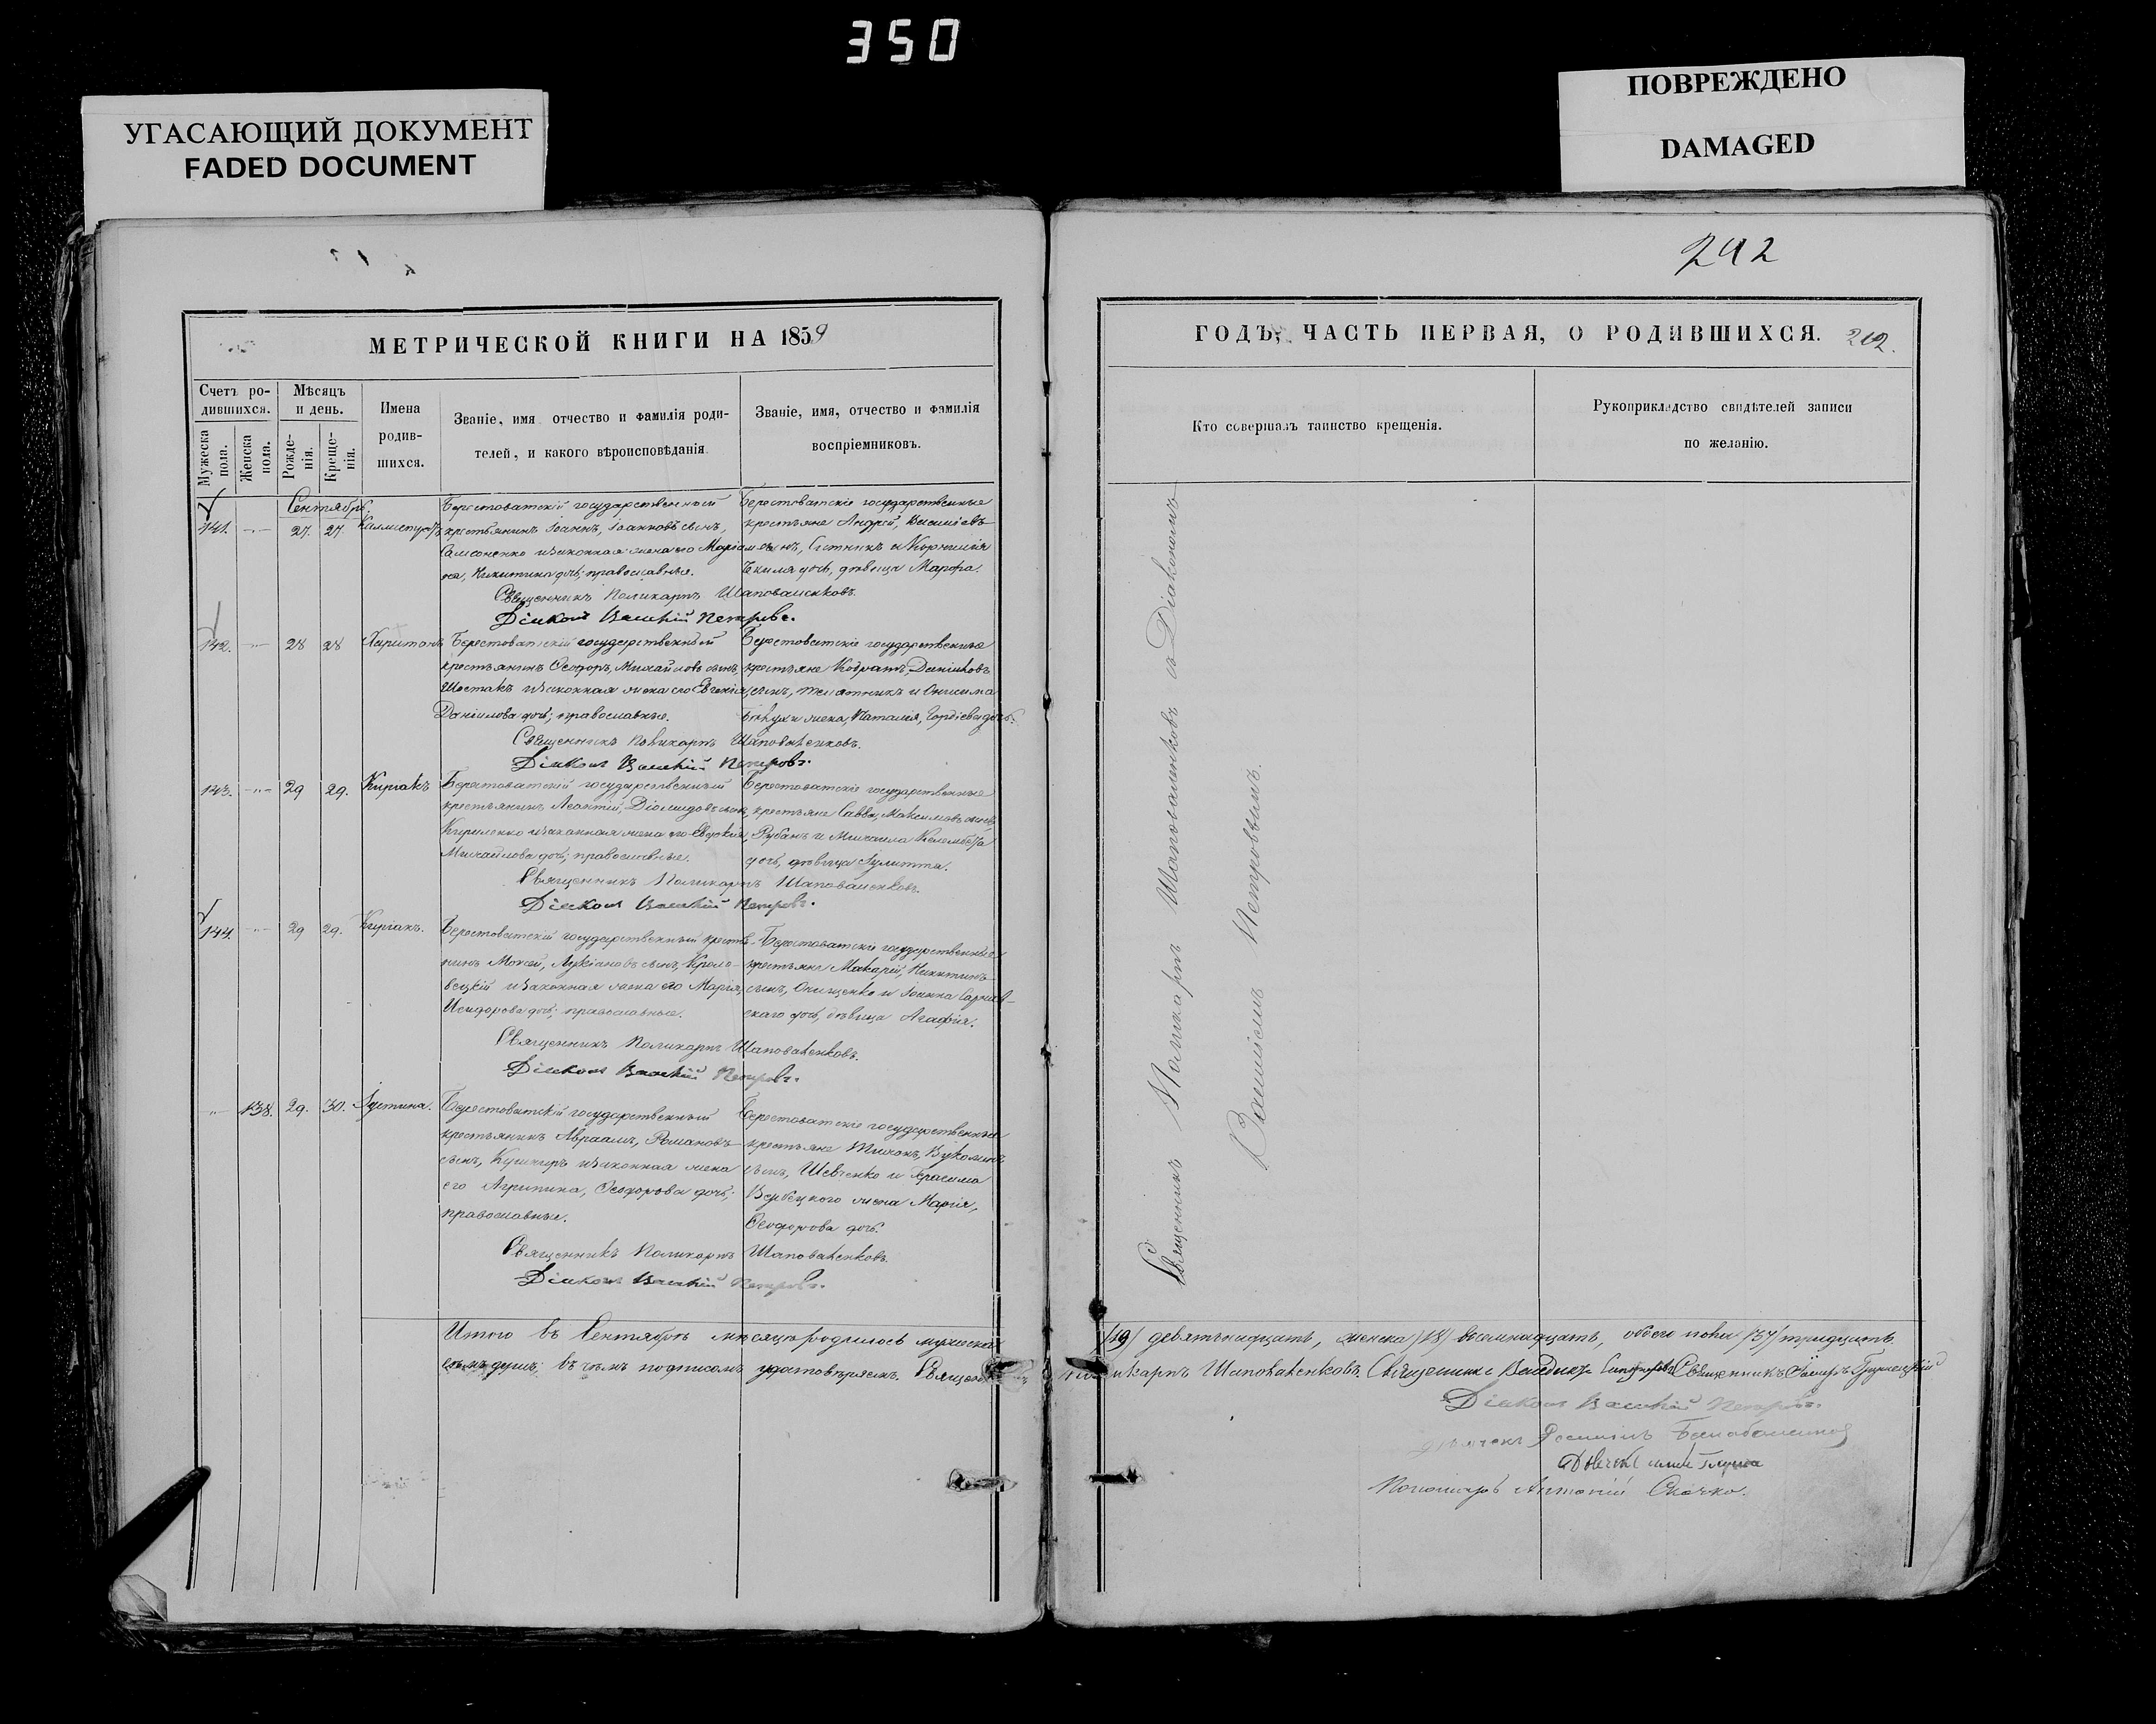 350
УГАСАЮЩИЙ ДОКУМЕНТ
FADED DOCUMENT
ПОВРЕЖДЕНО
DAMAGED
242
МЕТРИЧЕСКОЙ КНИГИ НА 1859
Счетъ ро-
дившихся.
Мѣсяцъ
и день.
Мужеска
пола.
Женска
пола.
Рожде-
нія.
Креще-
нія.
Имена
родив-
шихся.
Званіе, имя отчество и фамилія роди-
телей, и какого вѣроисповѣданія.
Званіе, имя, отчество и фамилія
воспріемниковъ.
Сентябрь.
141. 27. 27. Каллистратъ
Берестоватскій государственный
крестьянинъ Іоаннъ, Іоанновъ сынъ,
Самсоненко и законная жена его Маріам-
на, Никитина дочь; православные.
Берестоватскіе государственные
крестьяне Андрей, Василіевъ
сынъ, Ситникъ и Корнилія
дочь, дѣвица Марфа.
Священникъ Поликарпъ Шаповаленковъ.
Діаконъ Василій Петровъ.
142. 28 28 Харитонъ
Берестоватскій государственный
крестьянинъ Ѳеодоръ, Михайловъ сынъ,
Шостакъ и законная жена его Евгенія,
Даніилова дочь; православные.
Берестоватскіе государственные
крестьяне Кодратъ, Даніиловъ
сынъ, и Онисима
жена, Наталія, Гордіева дочь.
Священникъ Поликарпъ Шаповаленковъ.
Діаконъ Василій Петровъ.
143. 29 29. Киріакъ
Берестоватскій государственный
крестьянинъ Леонтій, Діомидовъ сынъ,
Кириленко и законная жена его Евдокія,
Михайлова дочь; православные.
Берестоватскіе государственные
крестьяне Савва, Максимовъ сынъ,
Рубанъ и Михаила
дочь, дѣвица Іулитта.
Священникъ Поликарпъ Шаповаленковъ.
Діаконъ Василій Петровъ.
144. 29 29. Киріакъ.
Берестоватскій государственный крестья-
нинъ Моисей, Лукіановъ сынъ, Кроло-
вецкій и законная жена его Марія,
Исидорова дочь; православные.
Берестоватскіе государственные
крестьяне Макарій, Никитинъ
сынъ, Онищенко и Іоанна Сарнав-
скаго дочь, дѣвица Агафія.
Священникъ Поликарпъ Шаповаленковъ.
Діаконъ Василій Петровъ.
138. 29. 30. Іустина.
Берестоватскій государственный
крестьянинъ Авраамъ, Романовъ
сынъ, Кушниръ и законная жена
его Агрипина, Ѳеодорова дочь;
православные.
Берестоватскіе государственные
крестьяне Тихонъ,
сынъ, Шевченко и Герасима
Вербецкого жена Марія,
Ѳеодорова дочь.
Священникъ Поликарпъ Шаповаленковъ.
Діаконъ Василій Петровъ.
Итого въ Сентябрѣ мѣсяцѣ родилось мужеска
семь душъ; въ чемъ подписомъ удостовѣряемъ.
ГОДЪ, ЧАСТЬ ПЕРВАЯ, О РОДИВШИХСЯ. 242.
Кто совершалъ таинство крещенія.
Рукоприкладство свидѣтелей записи
по желанію.
Священникъ Поликарпъ Шаповаленковъ съ Діакономъ
Василіемъ Петровымъ.
/19/ девятьнадцать, женска /18/ восемнадцать, обоего пола /37/ тридцать
Шаповаленковъ. Священникъ Священникъ
Діаконъ Василій Петровъ.
Пономарь Антоній